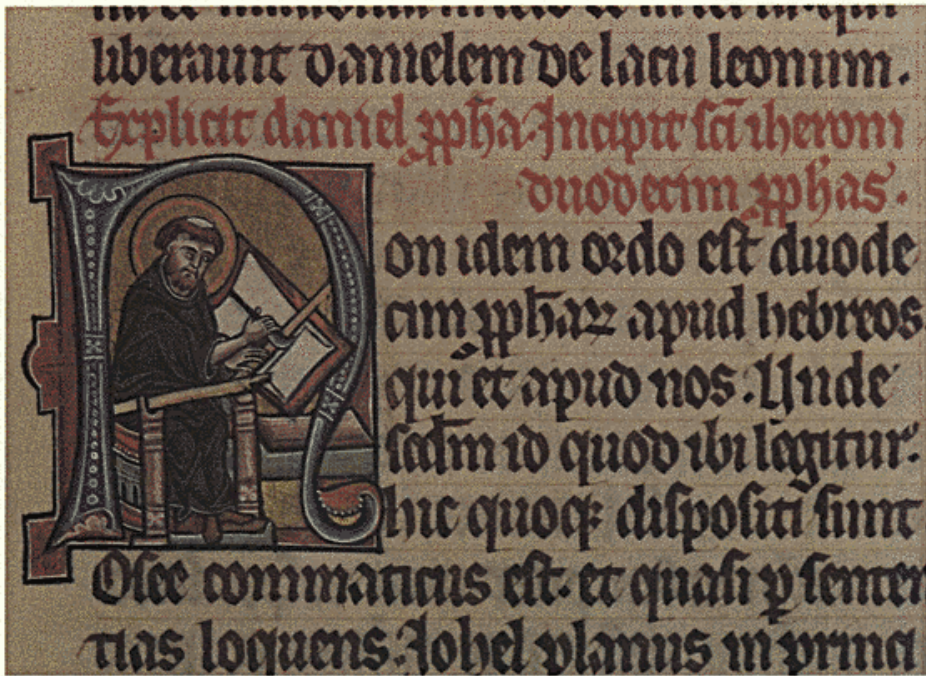 liberauit danielem de lacu leonum.
Explicit daniel ꝓpha. Incipit sc̄i iheroni
duodecim ꝓphas.
Non idem ordo est duode
cim ꝓpharꝝ apud hebreos
qui et apud nos. Unde
scd̄m id quod ibi legitur.
hic quoqꝫ dispositi sunt
Osee commaticus est. et quasi ꝑ senten
tias loquens. Johel planus in princi